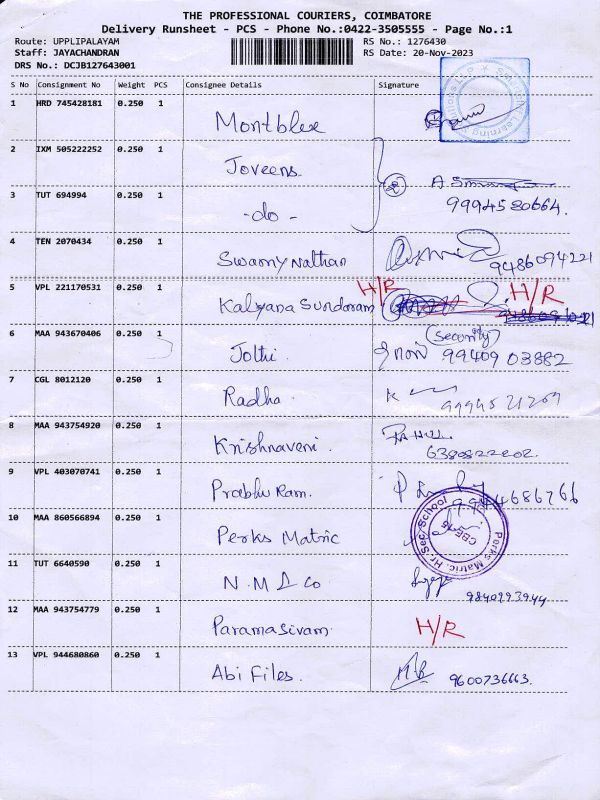 THE PROFESSIONAL COURIERS, COIMBATORE
Delivery Runsheet - PCS - Phone No.:0422-3505555 - Page No.:1
Route: UPPLIPALAYAM RS No.: 1276430
Staff: JAYACHANDRAN RS Date: 20-Nov-2023
DRS No.: DCJB127643001
S No Consignment No Weight PCS Consignee Details Signature
1 HRD 745428181 0.250 1 Montblee
2 IXM 505222252 0.250 1 Joveens.
3 TUT 694994 0.250 1 -do- 2 9994580664.
4 TEN 2070434 0.250 1 Swamy Nathan 9486094221
5 VPL 221170531 0.250 1 Kalyana Sundaram H/R H/R
6 MAA 943670406 1 Jothi. (Security) 99409 03882
7 CGL 8012120 0.250 1 Radha.
8 MAA 943754920 0.250 1 Krishnaveni. 6380822202.
9 VPL 403070741 0.250 1 Prabhu Ram.
10 MAA 860566894 0.250 1 Perks Matric Perks Matric. Hr Sec School CBE-15
11 TUT 6640590 0.250 1 N.M & Co 9840293944
12 MAA 943754779 0.250 1 Paramasivam. H/R
13 VPL 944680860 0.250 1 Abi Files. 9600736663.